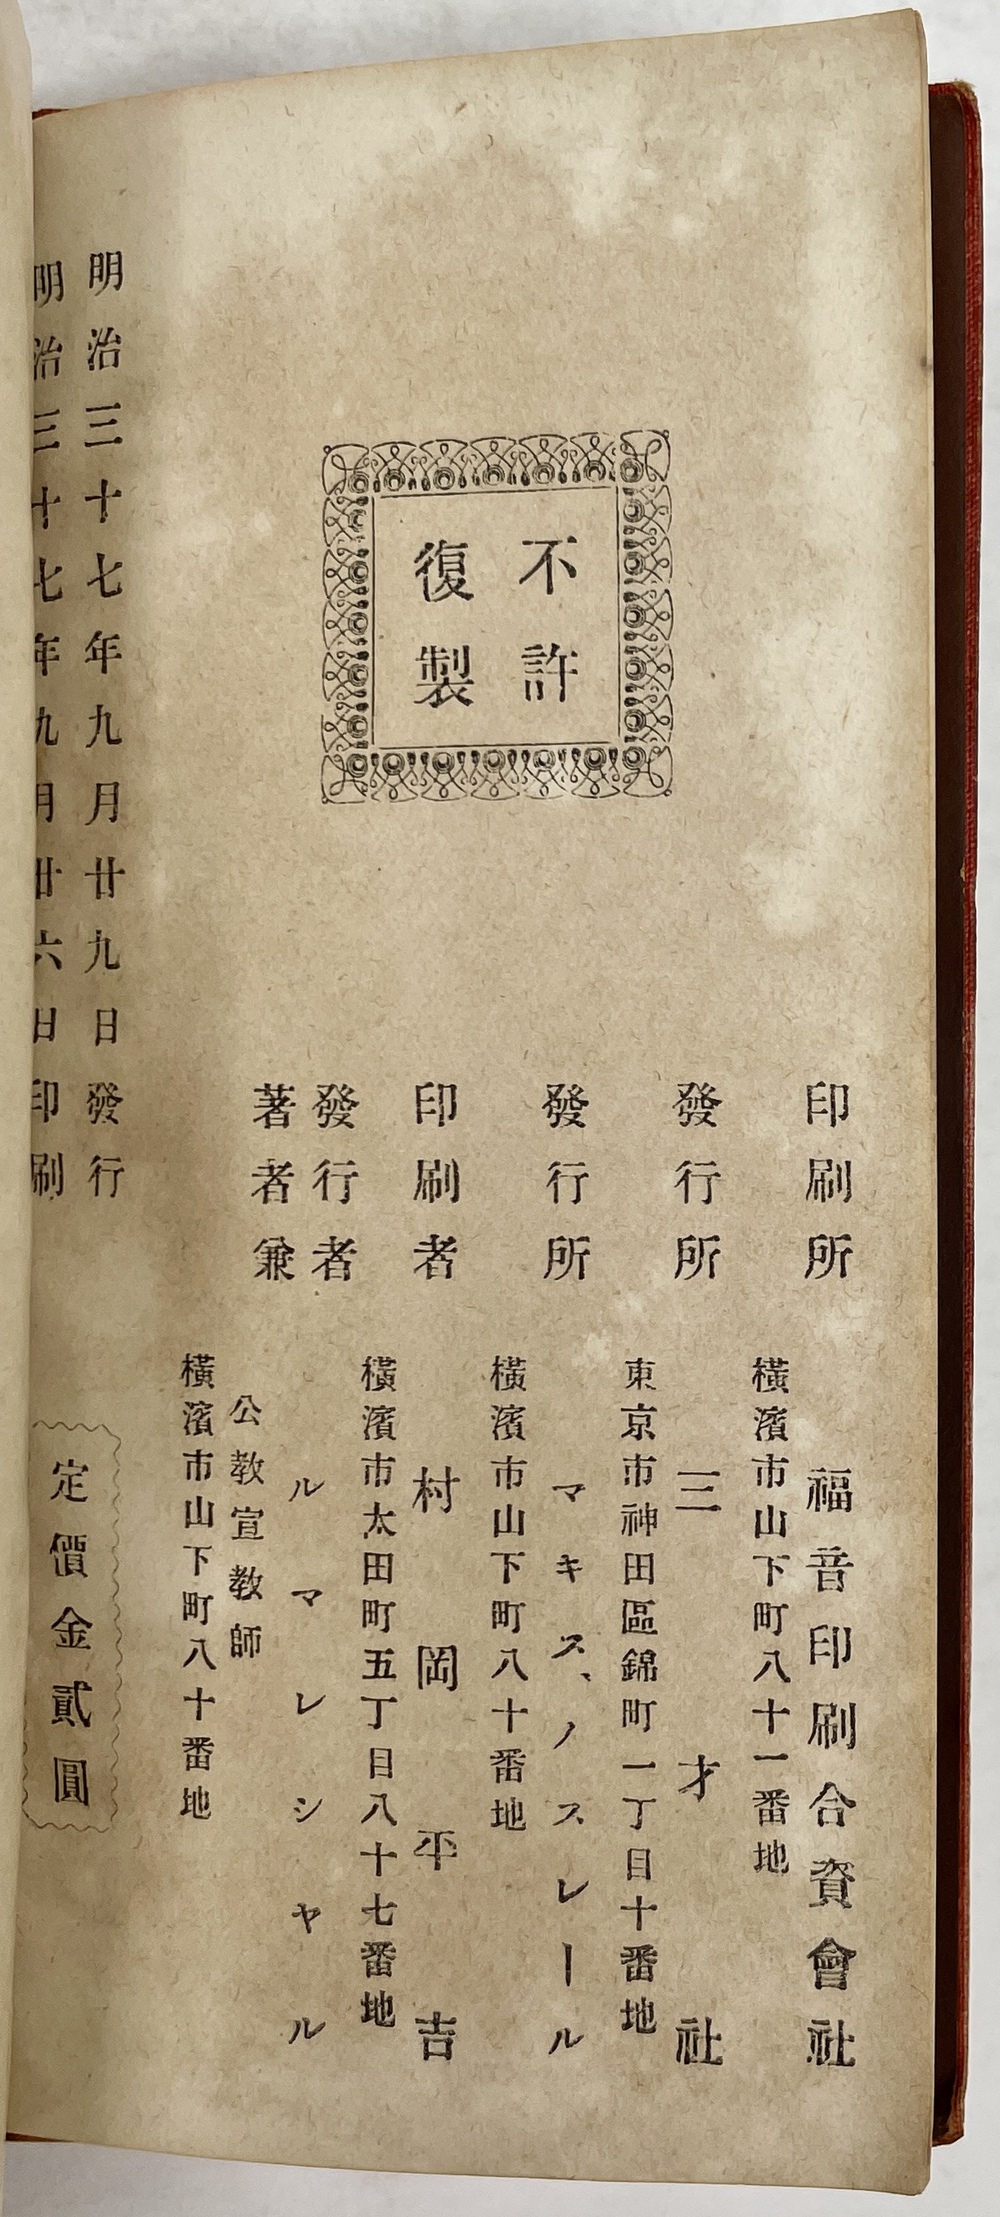 明治三十七年九月廿六日印刷
明治三十七年九月廿九日發行
定價金貳圓
不許
復製
著者兼
發行者
橫濱市山下町八十番地
公教宣教師
ルマレシヤル
印刷者
橫濱市太田町五丁目八十七番地
村岡平吉
發行所
橫濱市山下町八十番地
マキス、ノスレール
發行所
東京市神田區錦町一丁目十番地
三才社
印刷所
橫濱市山下町八十一番地
福音印刷合資會社